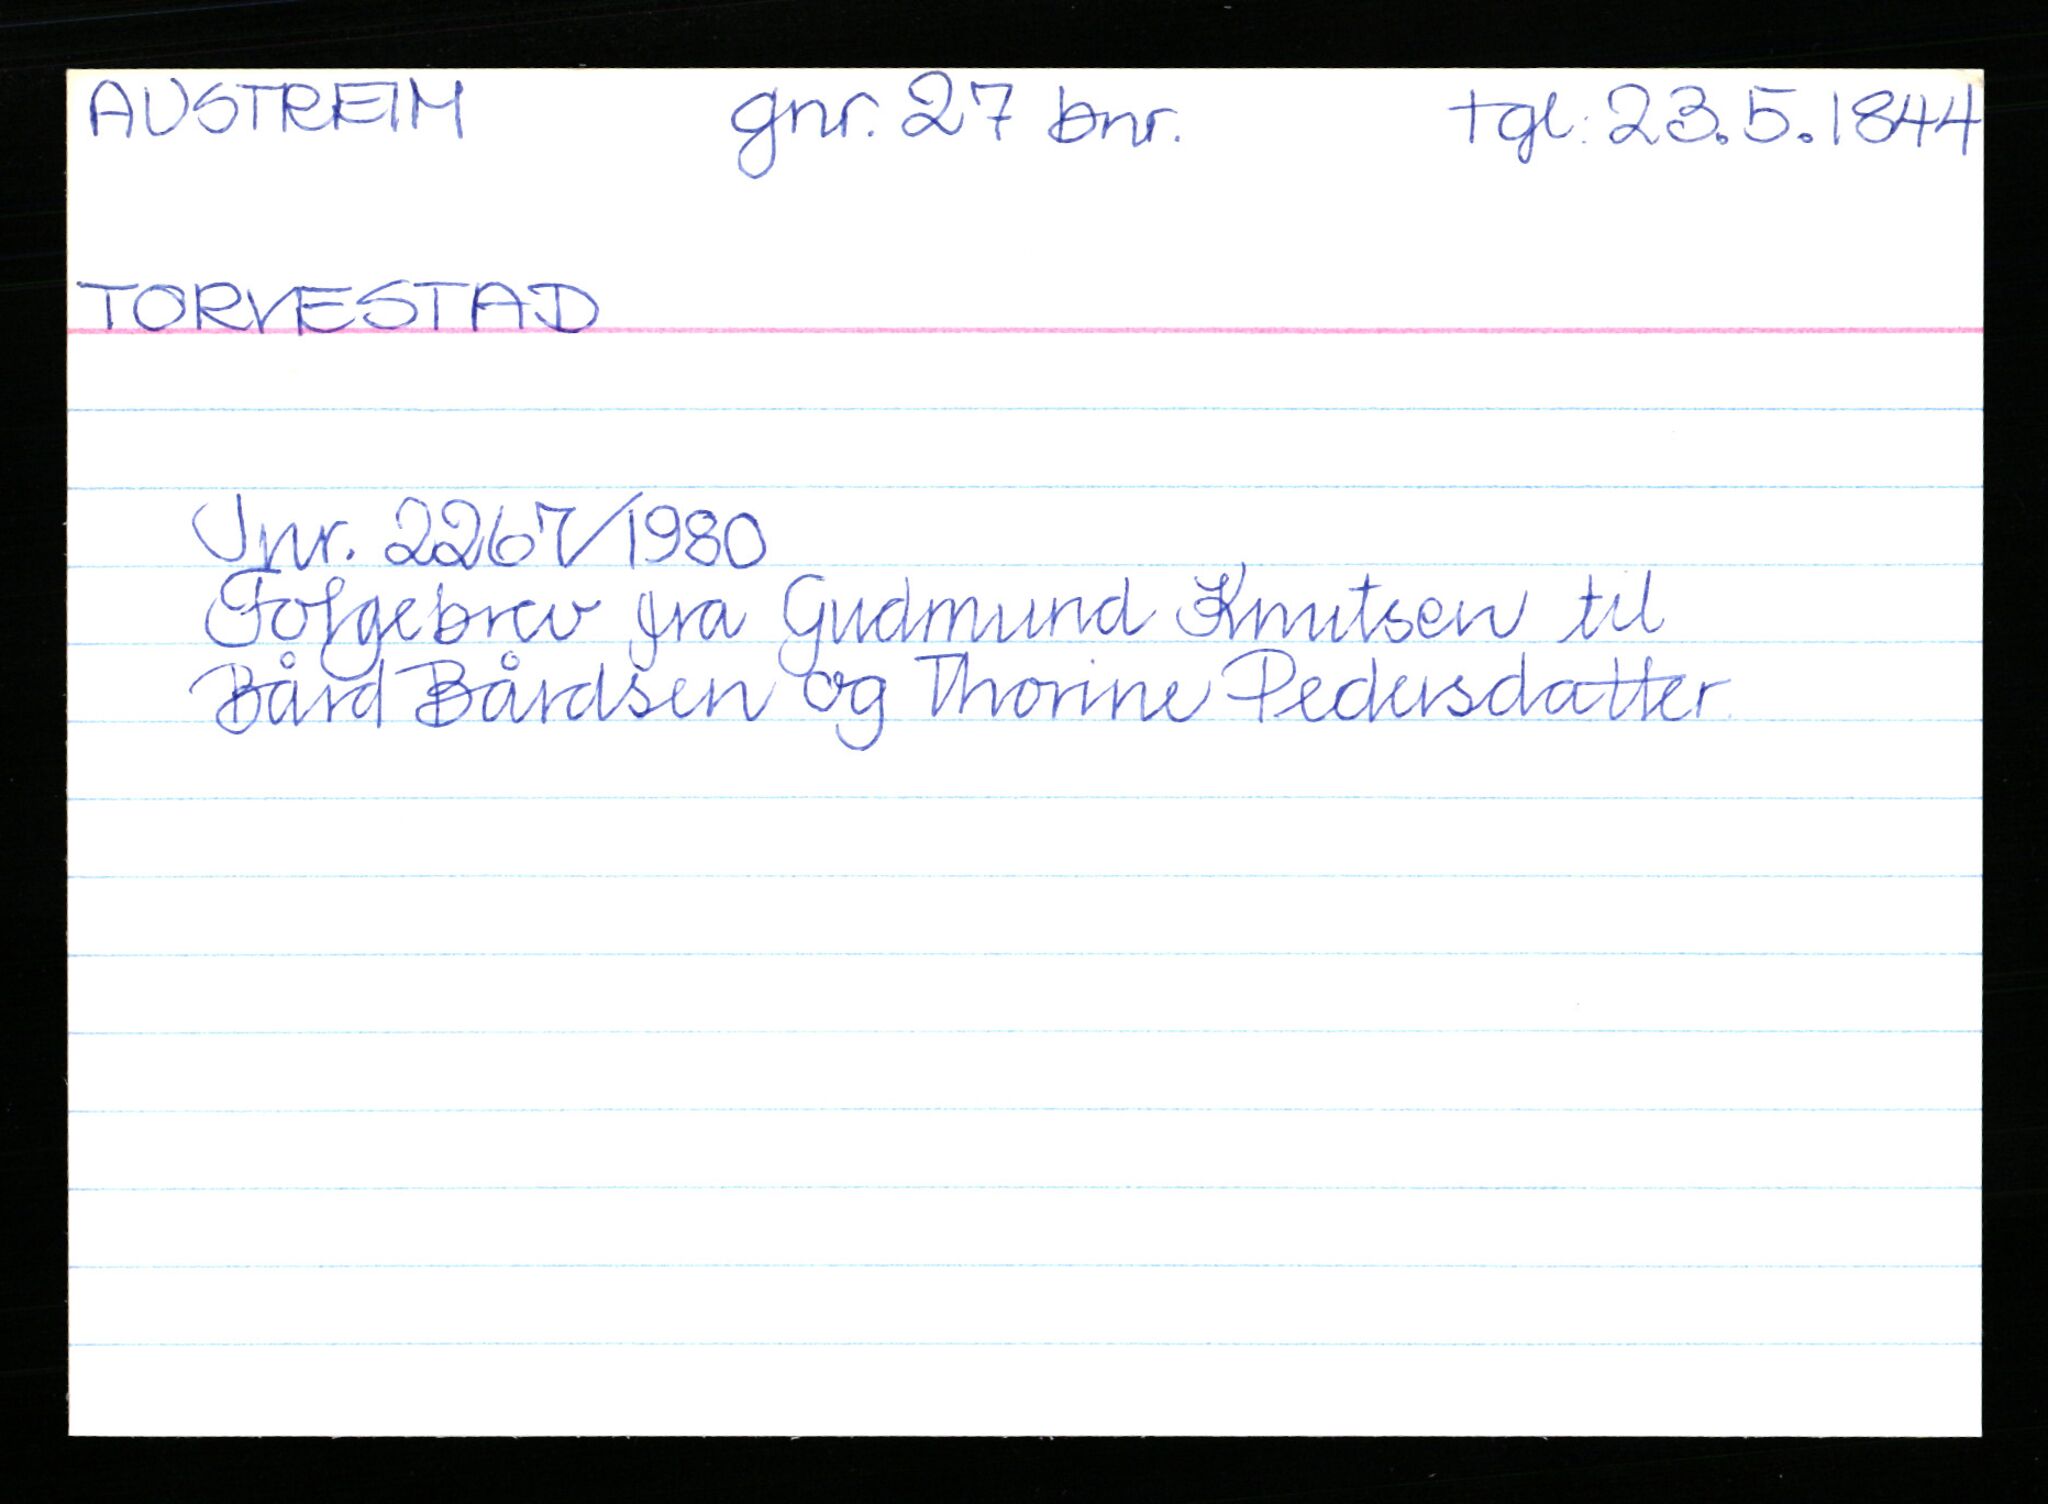 AUSTREIM gnr. 27 bnr. tgl: 23.5.1844
TORVESTAD
Jnr. 2267/1980
Følgebrev fra Gudmund Knutsen til
Bård Bårdsen og Thorine Pedersdatter